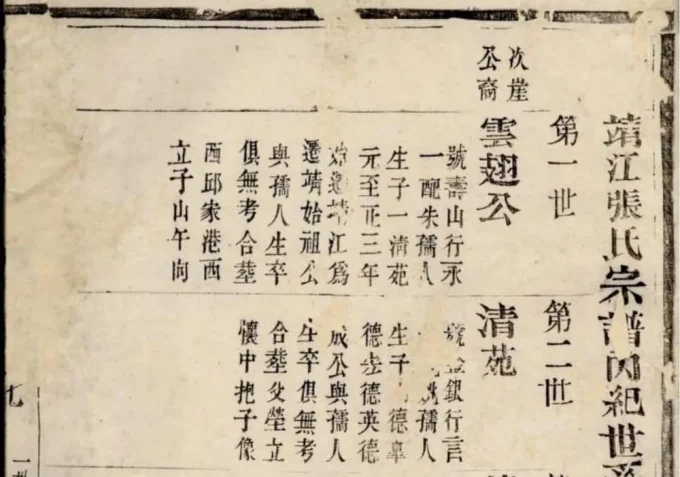 靖江張氏宗譜內紀世
第一世
次崖
公裔
雲翅公
號壽山行永
一配朱孺人
生子一清苑
元至正三年
始遷靖江爲
遷靖始祖公
與孺人生卒
俱無考合塟
西邱家港西
立子山午向
第二世
清苑
號銀行言
孺人
生子德臯
德步德英德
成公與孺人
生卒俱無考
合塟父塋立
懷中抱子像